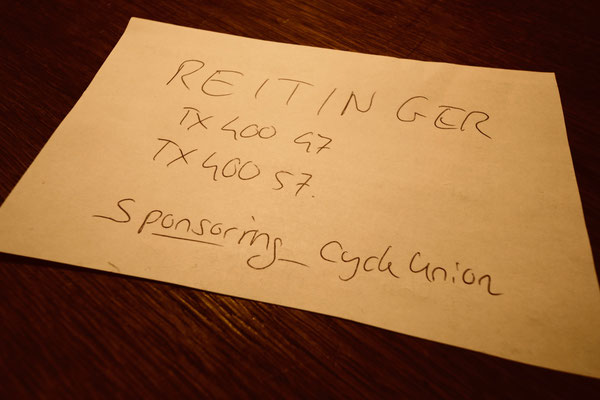 REITINGER
TX 400 47
TX 400 57.
Sponsoring Cycle Union